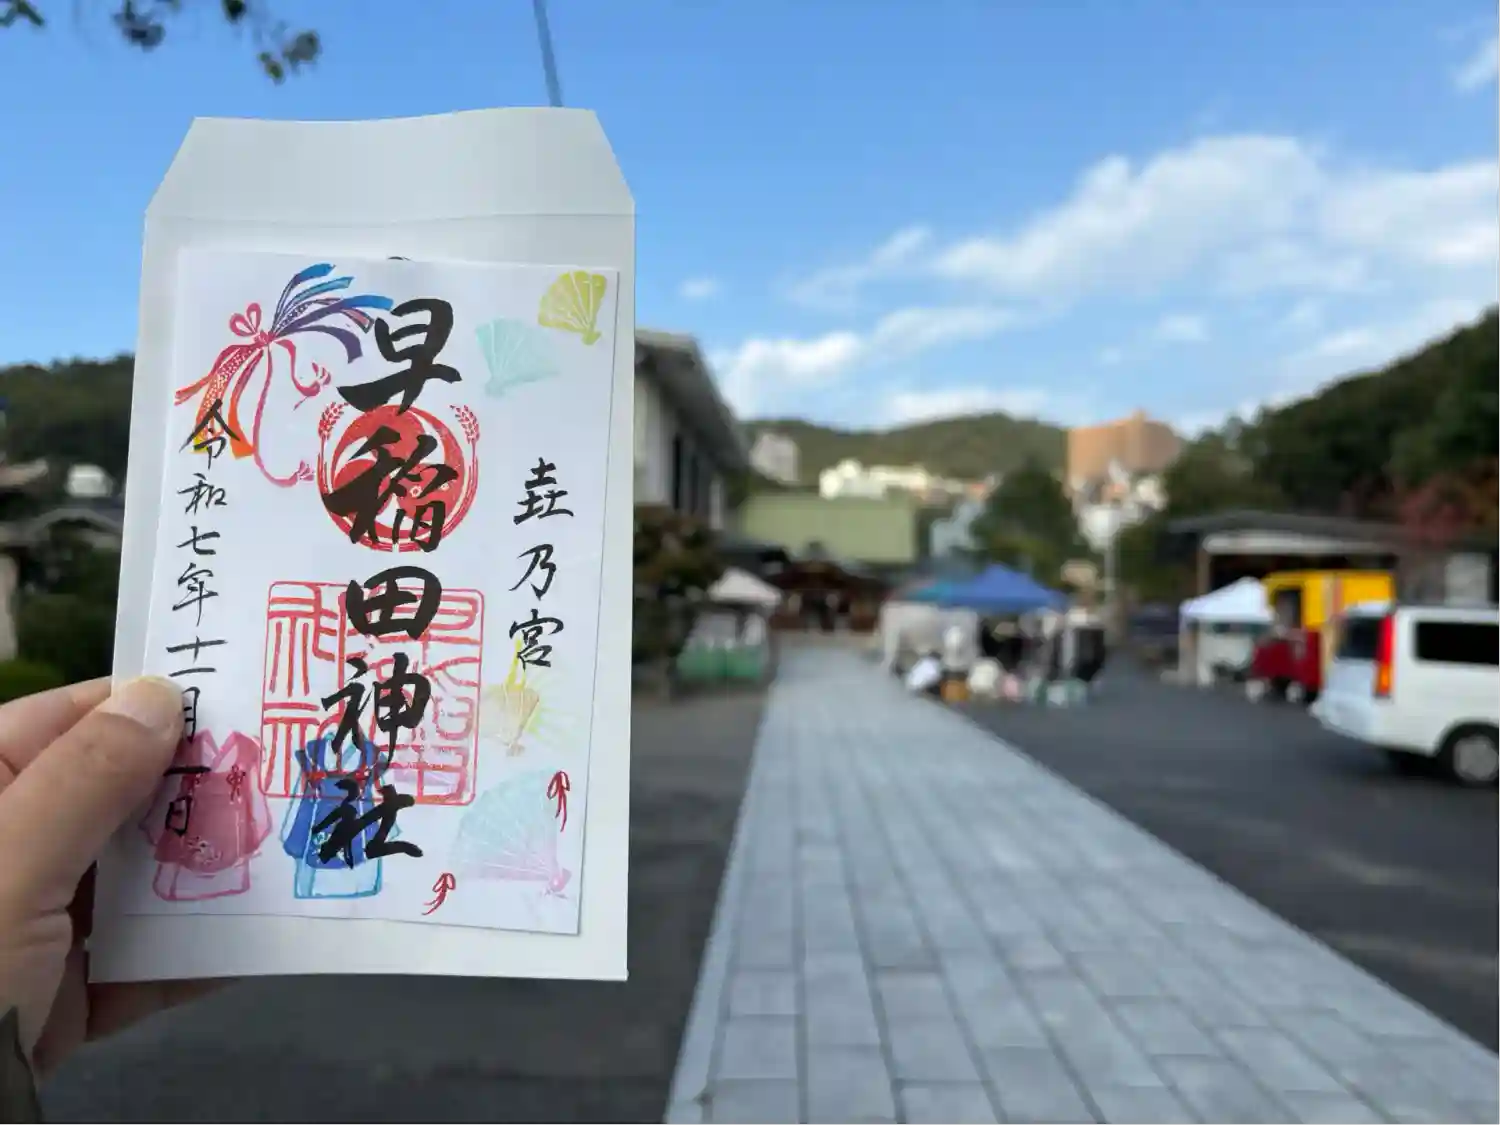 㐂乃宮
早稲田神社
早稲田神社
令和七年十一月一日